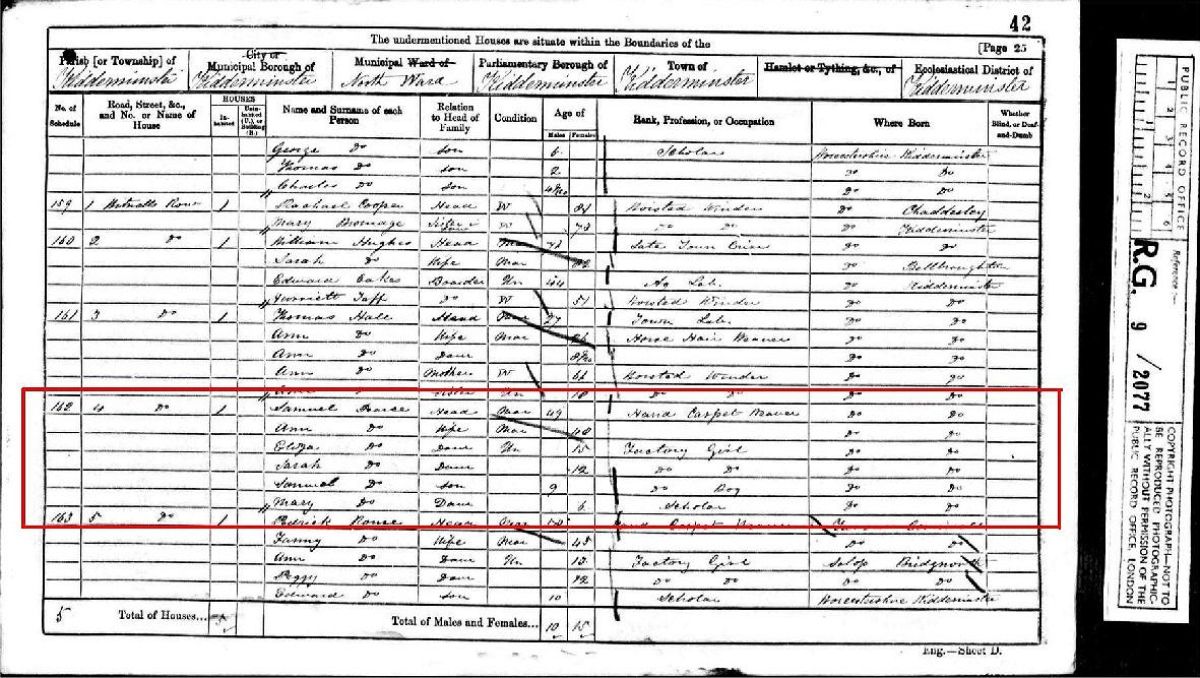 42
The undermentioned Houses are situate within the Boundaries of the
[Page 25
Parish [or Township] of
City or
Municipal Borough of
Municipal Ward of
Parliamentary Borough of
Town of
Hamlet or Tything, &c., of
Ecclesiastical District of
Kidderminster Kidderminster North Ward Kidderminster Kidderminster Kidderminster
No. of Schedule
Road, Street, &c., and No. or Name of House
HOUSES
Inhabited
Uninhabited (U.), or Building (B.)
Name and Surname of each Person
Relation to Head of Family
Condition
Age of
Males
Females
Rank, Profession, or Occupation
Where Born
Whether Blind, or Deaf-and-Dumb
George Do Son 6 Scholar Worcestershire Kidderminster
Thomas Do Son 2 Do Do
Charles Do Son Do Do
159 1 Row 1 Rachael Cooper Head W 84 Worsted Winder Do Chaddesley
Mary W 73 Do Do Do Kidderminster
160 2 Do 1 William Hughes Head Mar Late Town Crier Do Do
Sarah Do Wife Mar Do
Edward Oakes Boarder Un 44 Ag Lab. Do Kidderminster
Do W 51 Worsted Winder Do Do
161 3 Do 1 Thomas Hall Head Mar 27 Town Lab. Do Do
Ann Do Wife Mar Horse Hair Weaver Do Do
Ann Do Daur Do Do
Ann Do Mother W 61 Worsted Winder Do Do
Un 18 Do Do Do Do
162 4 Do 1 Samuel Head Mar 49 Hand Carpet Weaver Do Do
Ann Do Wife Mar 40 Do Do
Eliza Do Daur Un 15 Factory Girl Do Do
Sarah Do Daur 12 Do Do Do Do
Samuel Do Son 9 Do Boy Do Do
Mary Do Daur 6 Scholar Do Do
163 5 Do 1 Head Mar Carpet Weaver
Fanny Do Wife Mar 45 Do Do
Ann Do Daur Un 13 Factory Girl Salop Bridgnorth
Peggy Do Daur 12 Do Do Do Do
Edward Do Son 10 Scholar Worcestershire Kidderminster
5 Total of Houses...
Total of Males and Females... 10 15
Eng.—Sheet D.
PUBLIC RECORD OFFICE
1 2 3 4 5 6
1 2
Reference:—
R.G. 9 / 2077
COPYRIGHT PHOTOGRAPH—NOT TO
BE REPRODUCED PHOTOGRAPHIC-
ALLY WITHOUT PERMISSION OF THE
PUBLIC RECORD OFFICE, LONDON